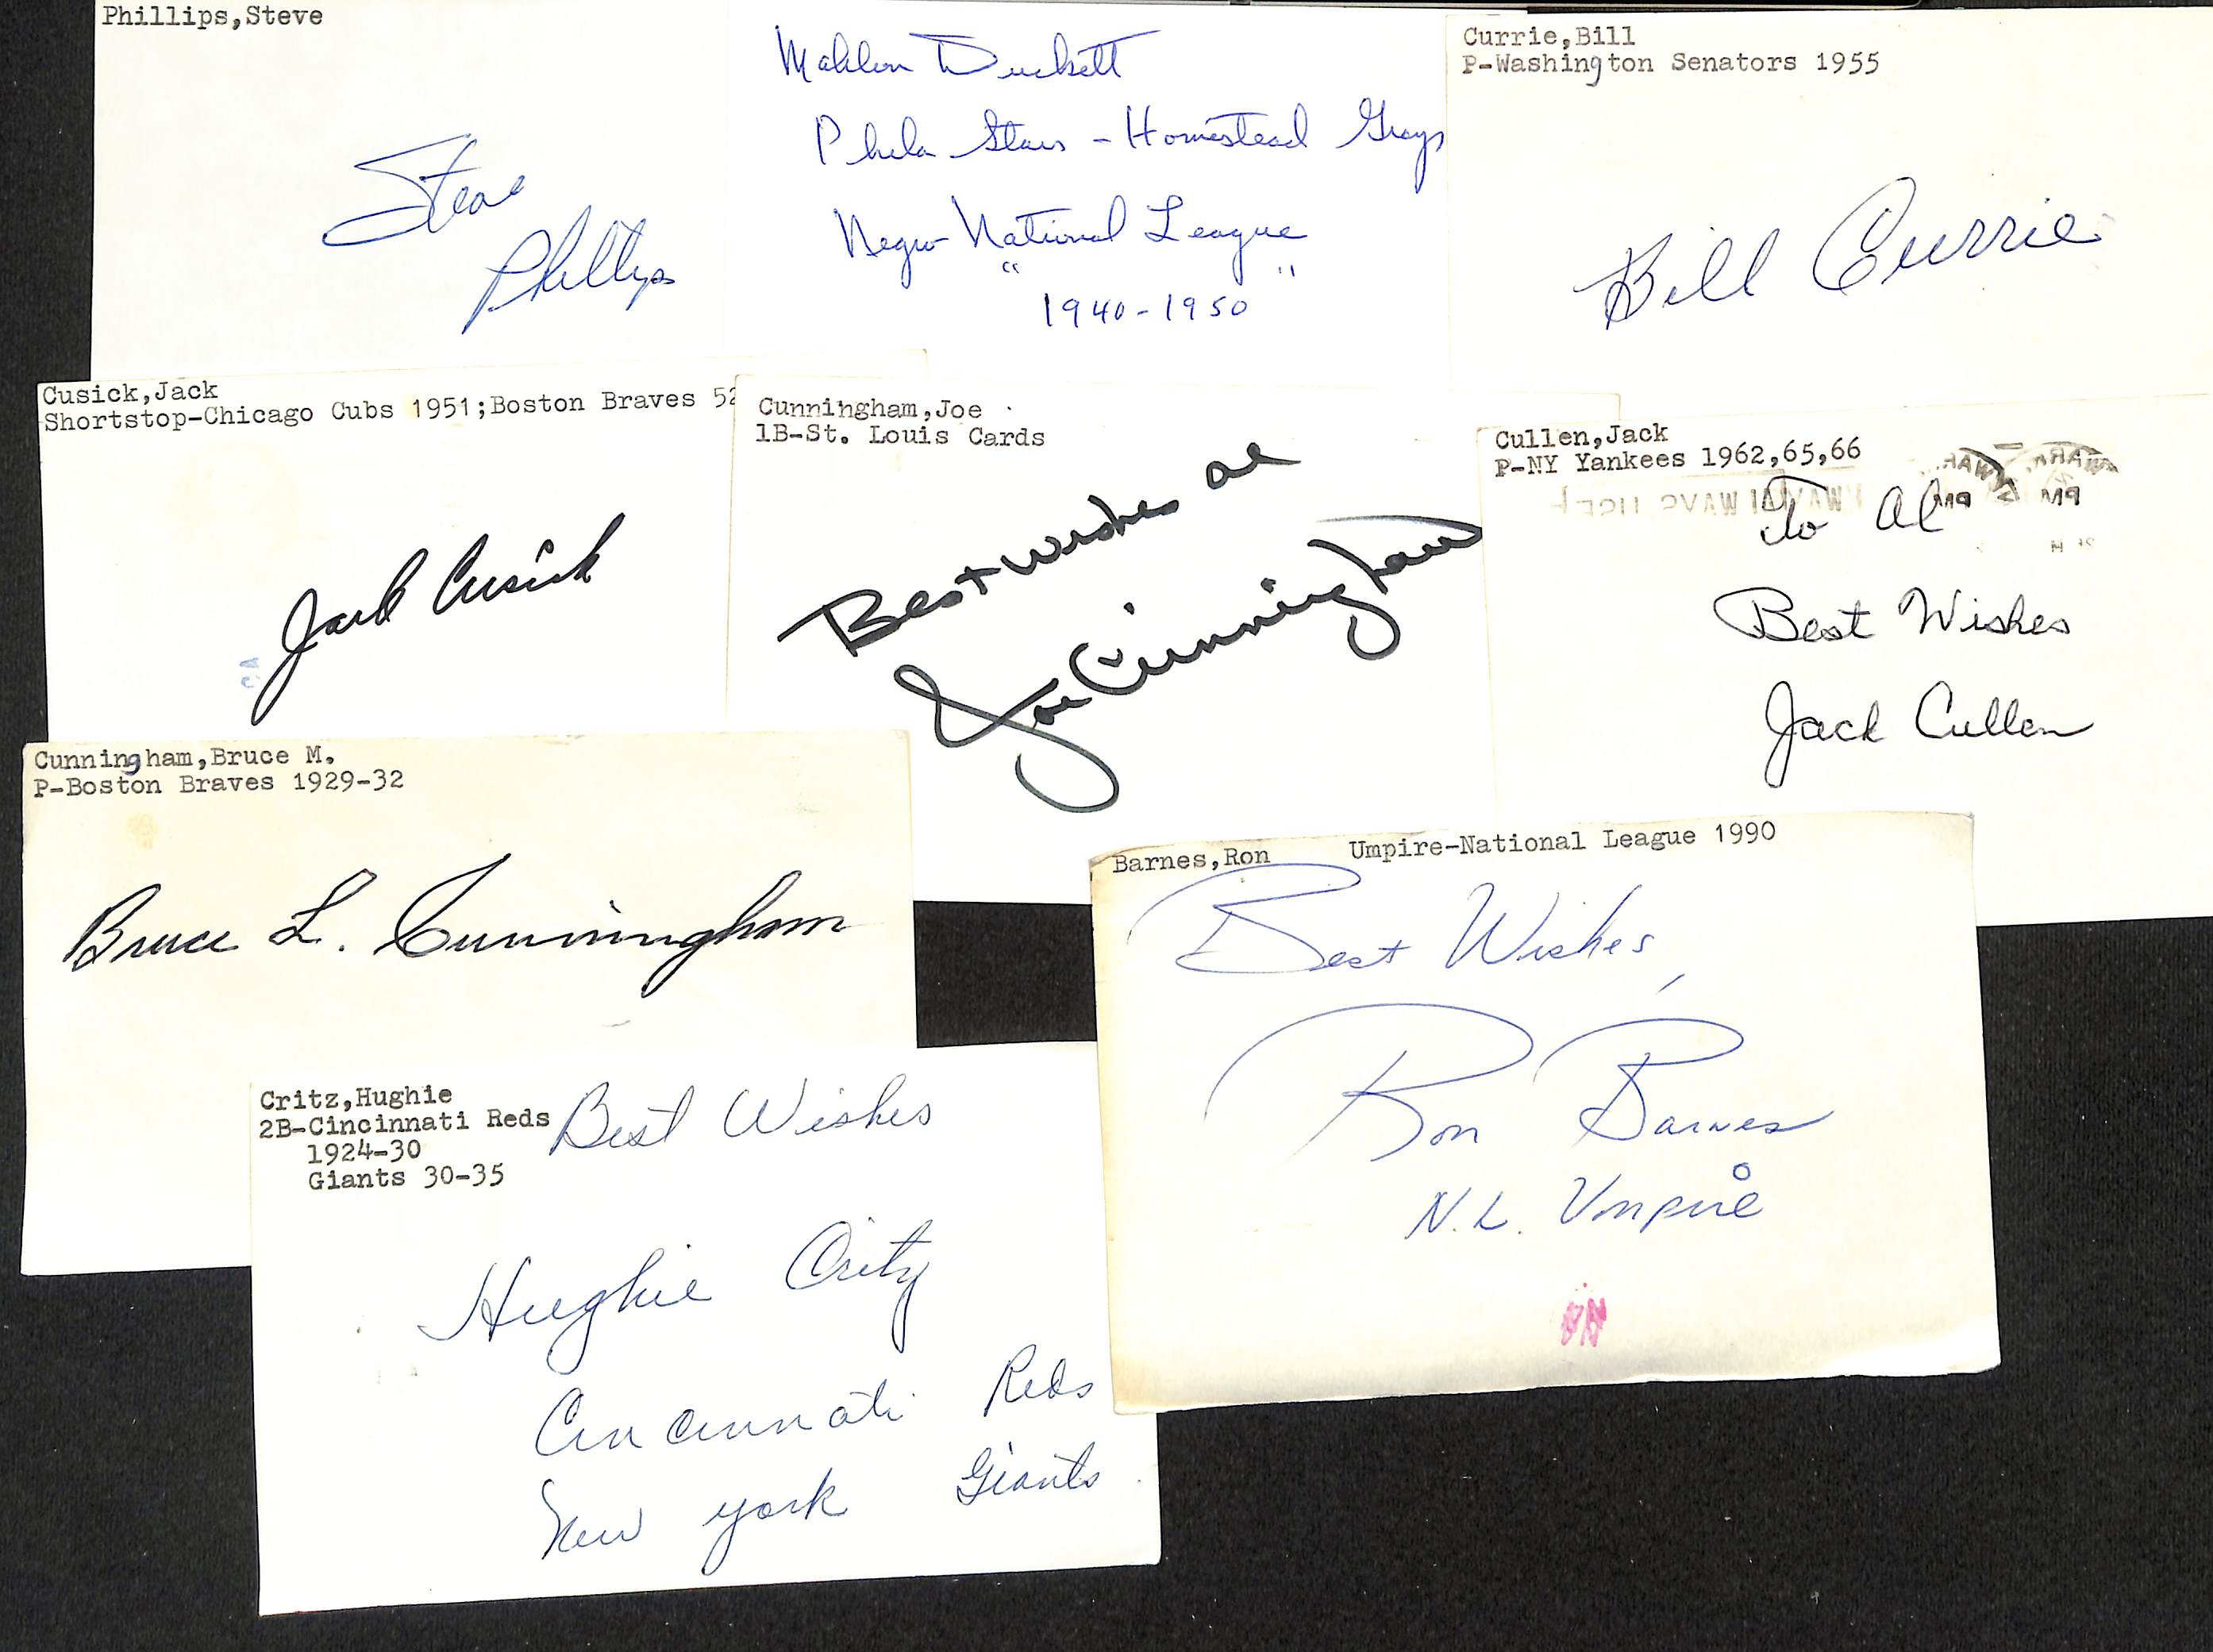 Phillips,Steve
Steve
Phillips
Mahlon Duckett
Phila Stars - Homestead Grays
Negro National League
" "
1940-1950
Currie,Bill
P-Washington Senators 1955
Bill Currie
Cusick,Jack
Shortstop-Chicago Cubs 1951;Boston Braves 52
Jack Cusick
Cunningham,Joe
1B-St. Louis Cards
Best wishes Al
Joe Cunningham
Cullen,Jack
P-NY Yankees 1962,65,66
To Al
Best Wishes
Jack Cullen
Cunningham,Bruce M.
P-Boston Braves 1929-32
Bruce L. Cunningham
Barnes,Ron Umpire-National League 1990
Best Wishes,
Ron Barnes
N.L. Umpire
Critz,Hughie
2B-Cincinnati Reds
1924-30
Giants 30-35
Best Wishes
Hughie Critz
Cincinnati Reds
New York Giants